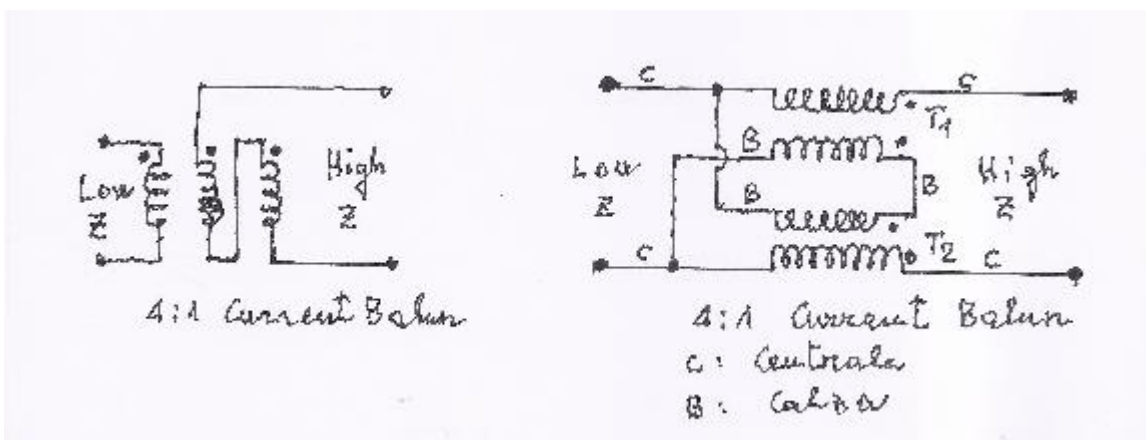 Low
Z
High
Z
4:1 Current Balun
C
C
B
T1
Low
Z
B
B
High
Z
C
T2
C
4:1 Current Balun
C: Centrale
B: Calza